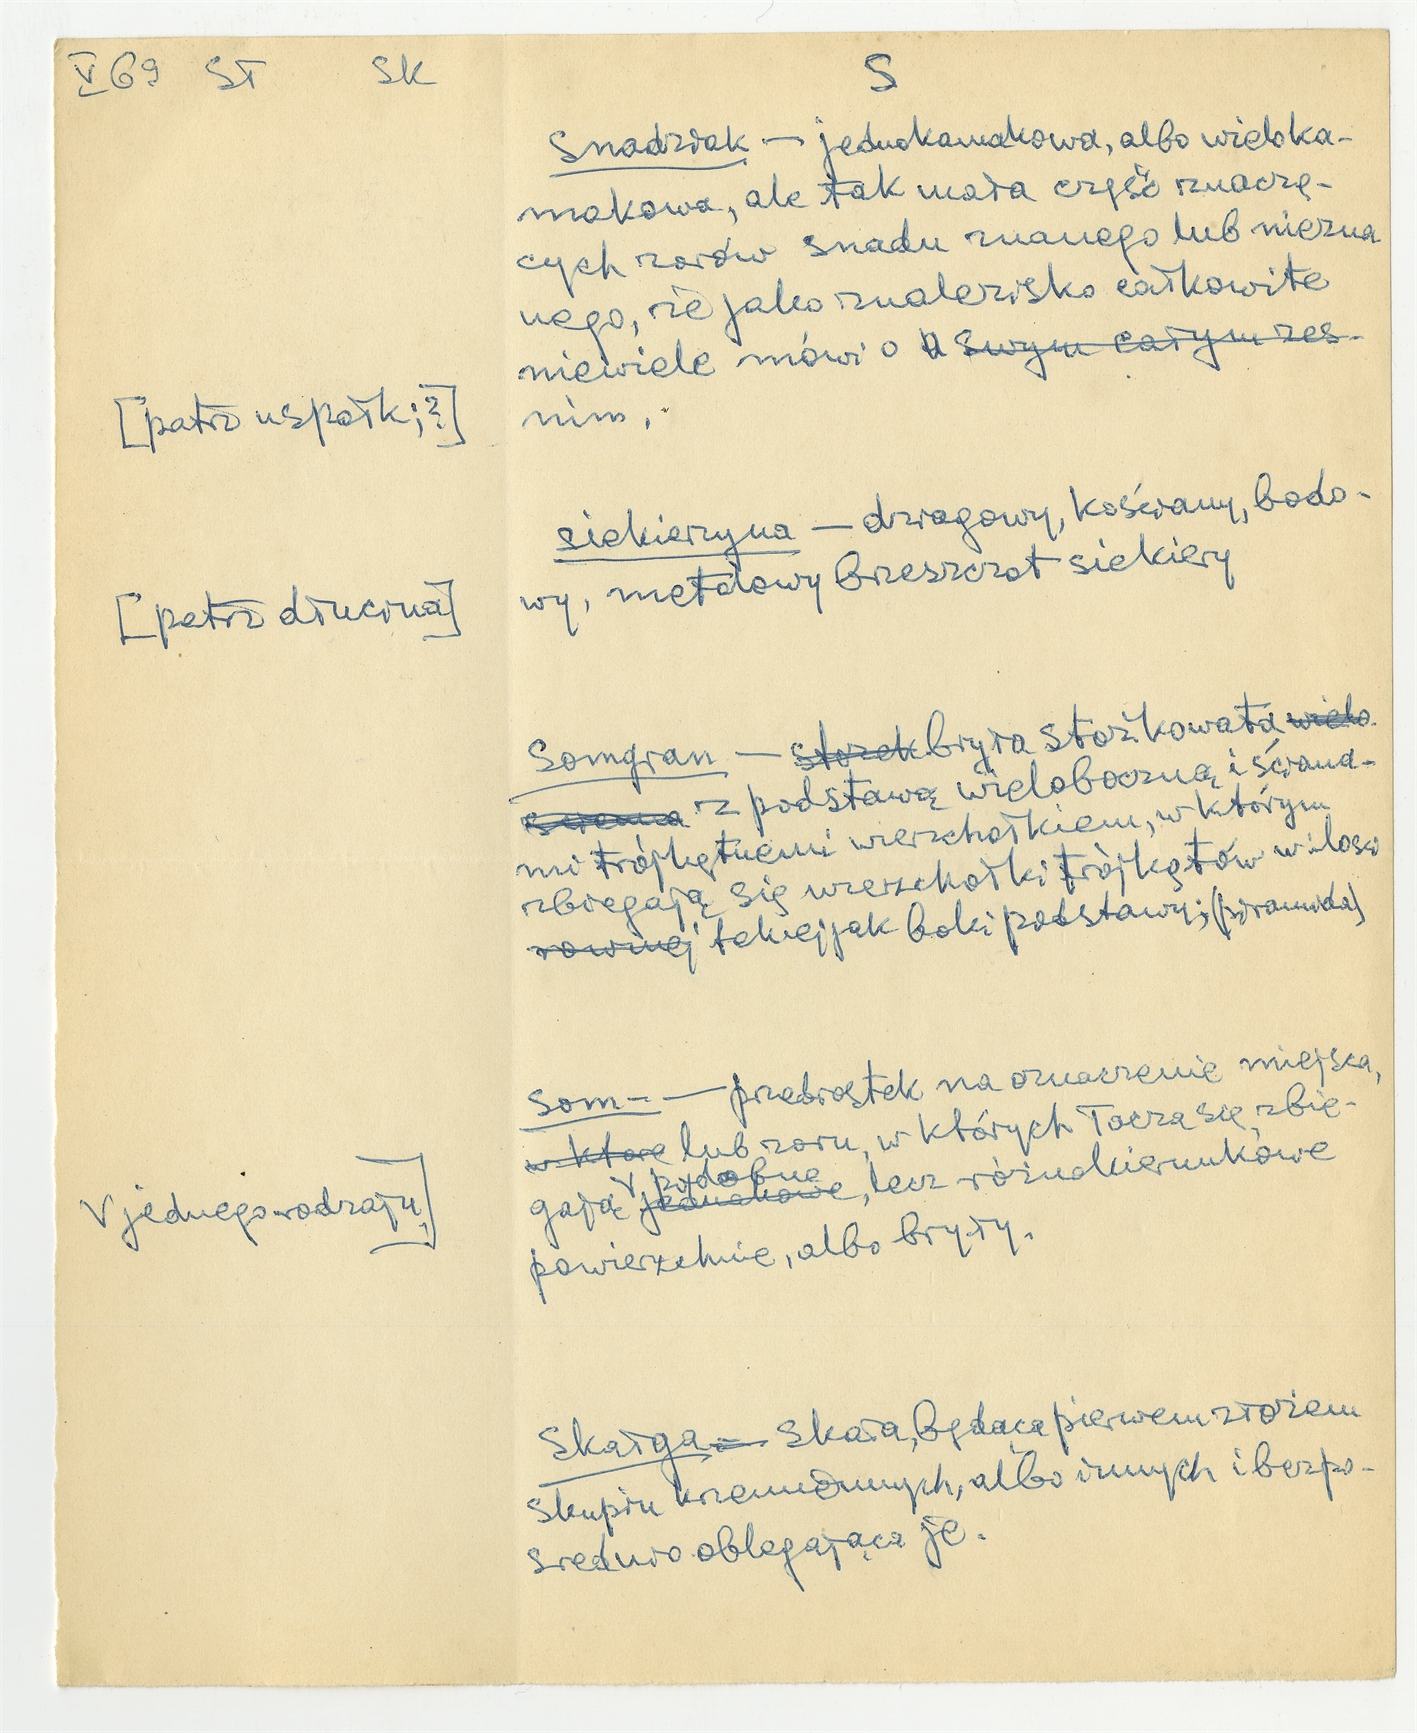 V 69 ST SK S
Snadziak — jednokamakowa, albo wieloka-
makowa, ale tak mała część znaczą-
cych zorów snadu znanego lub niezna
nego, że jako znalezisko całkowite
niewiele mówi o swym całym zes-
[patrz uspołk; ?]
nim.
siekierzyna — dziagowy, kościany, bodo-
wy, metalowy brzeszczot siekiery
[patrz dłucina]
Somgran — stożek bryła stożkowata wielo
ścienna z podstawą wieloboczną i ściana-
mi trójkątnemi wierzchołkiem, w którym
zbiegają się wierzchołki trójkątów w ilości
rownej takiej jak boki podstawy; (piramida)
Som- — przedrostek na oznaczenie miejsca,
w które lub zoru, w których łączą się, zbie-
V podobne
gają jednakowe, lecz różnokierunkowe
V jednego rodzaju]
powierzchnie, albo bryły.
Skałga = skała, będąca pierwem złożem
skupin krzemiennych, albo innych i bezpo-
średnio oblegająca je.